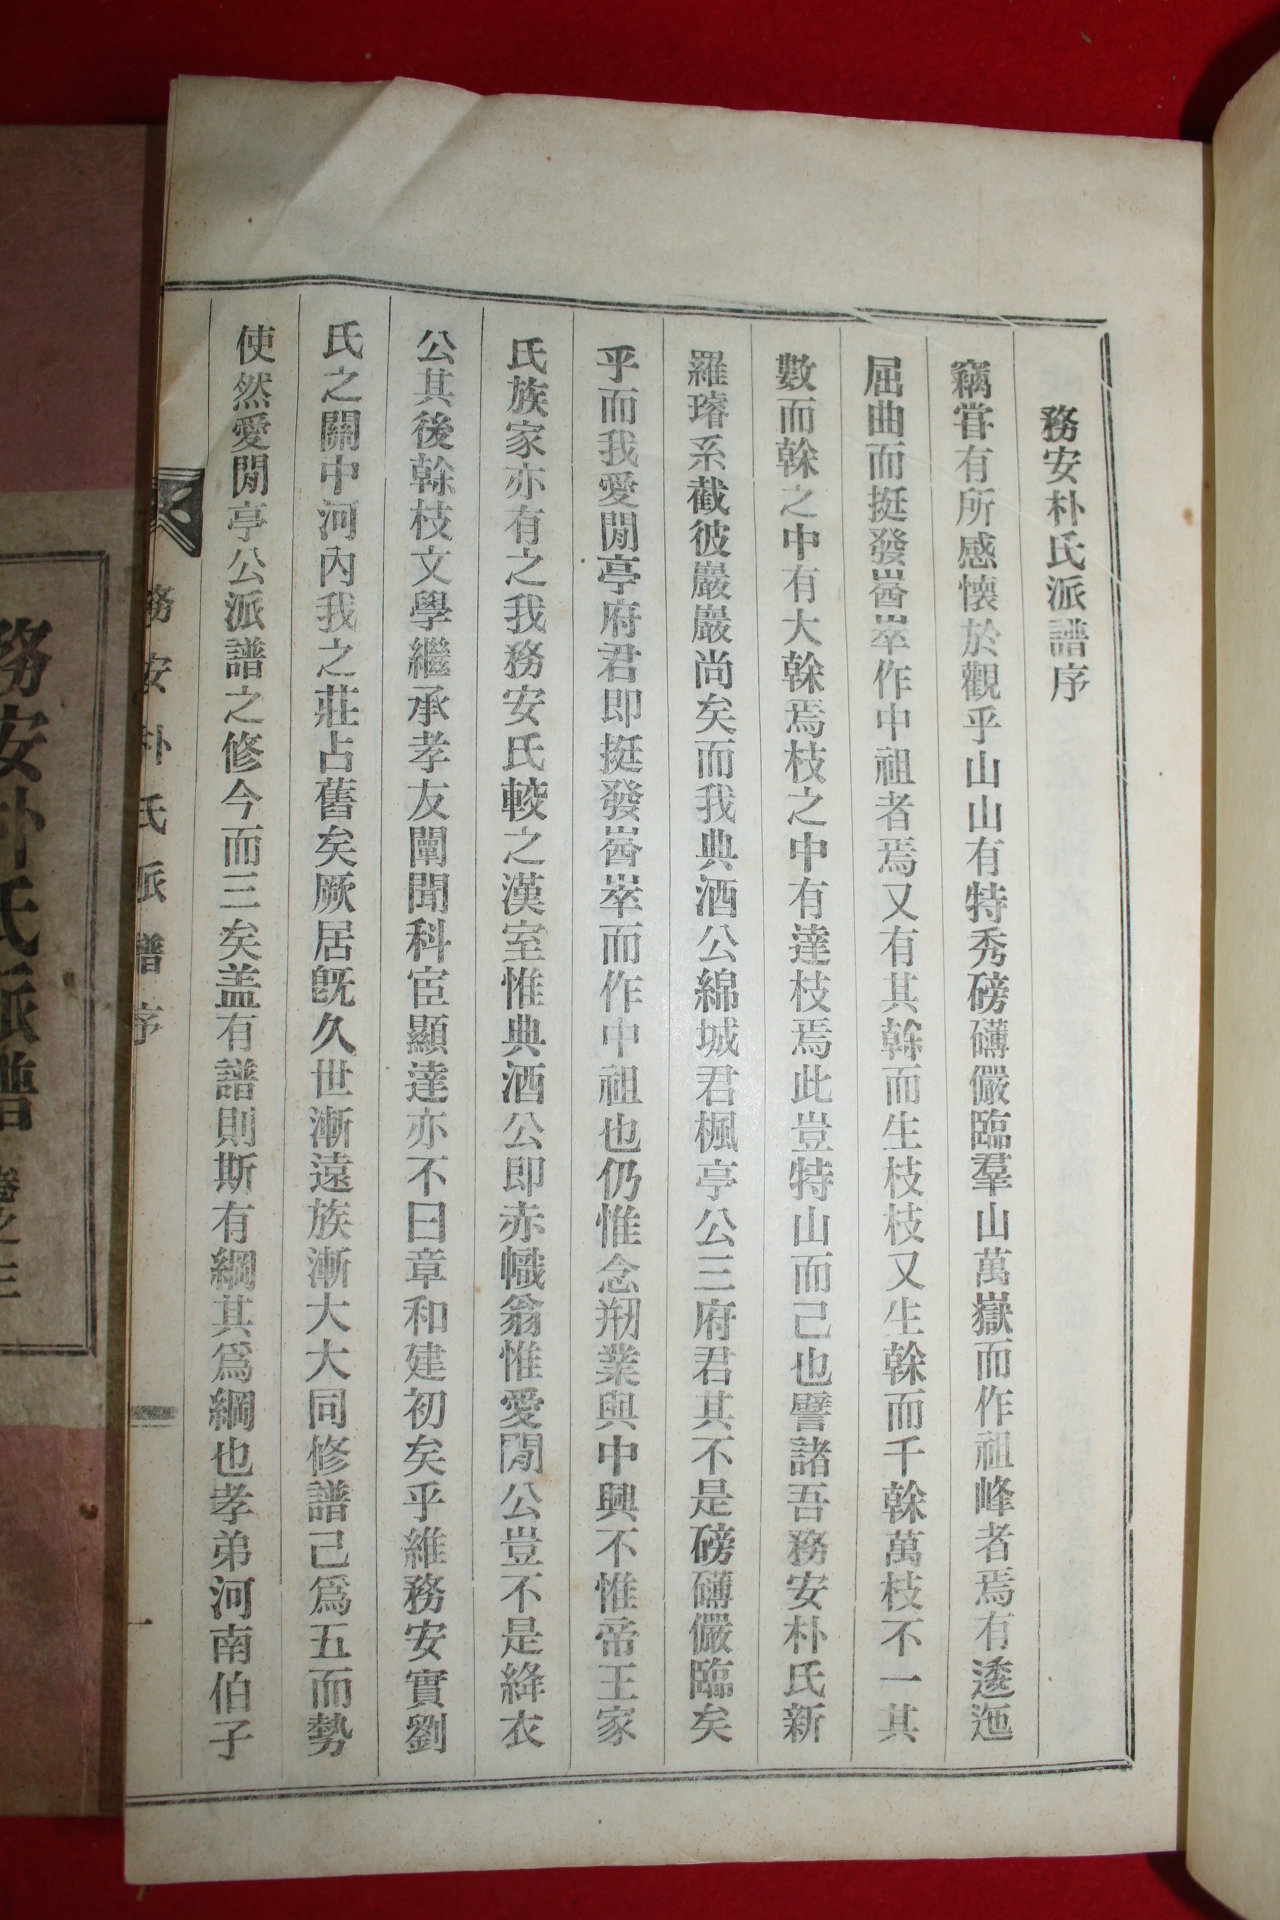 務安朴氏派譜序
竊嘗有所感懷於觀乎山山有特秀磅礴儼臨羣山萬嶽而作祖峰者焉有逶迤
屈曲而挺發崷崒作中祖者焉又有其榦而生枝枝又生榦而千榦萬枝不一其
數而榦之中有大榦焉枝之中有達枝焉此豈特山而己也譬諸吾務安朴氏新
羅璿系截彼巖巖尙矣而我典酒公綿城君楓亭公三府君其不是磅礴儼臨矣
乎而我愛閒亭府君即挺發崷崒而作中祖也仍惟念剏業與中興不惟帝王家
氏族家亦有之我務安氏較之漢室惟典酒公即赤幟翁惟愛閒公豈不是絳衣
公其後榦枝文學繼承孝友闡聞科宦顯達亦不曰章和建初矣乎維務安實劉
氏之關中河內我之莊占舊矣厥居旣久世漸遠族漸大大同修譜己爲五而勢
使然愛閒亭公派譜之修今而三矣盖有譜則斯有綱其爲綱也孝弟河南伯子
務安朴氏派譜序
一
務安朴氏派譜 卷之三